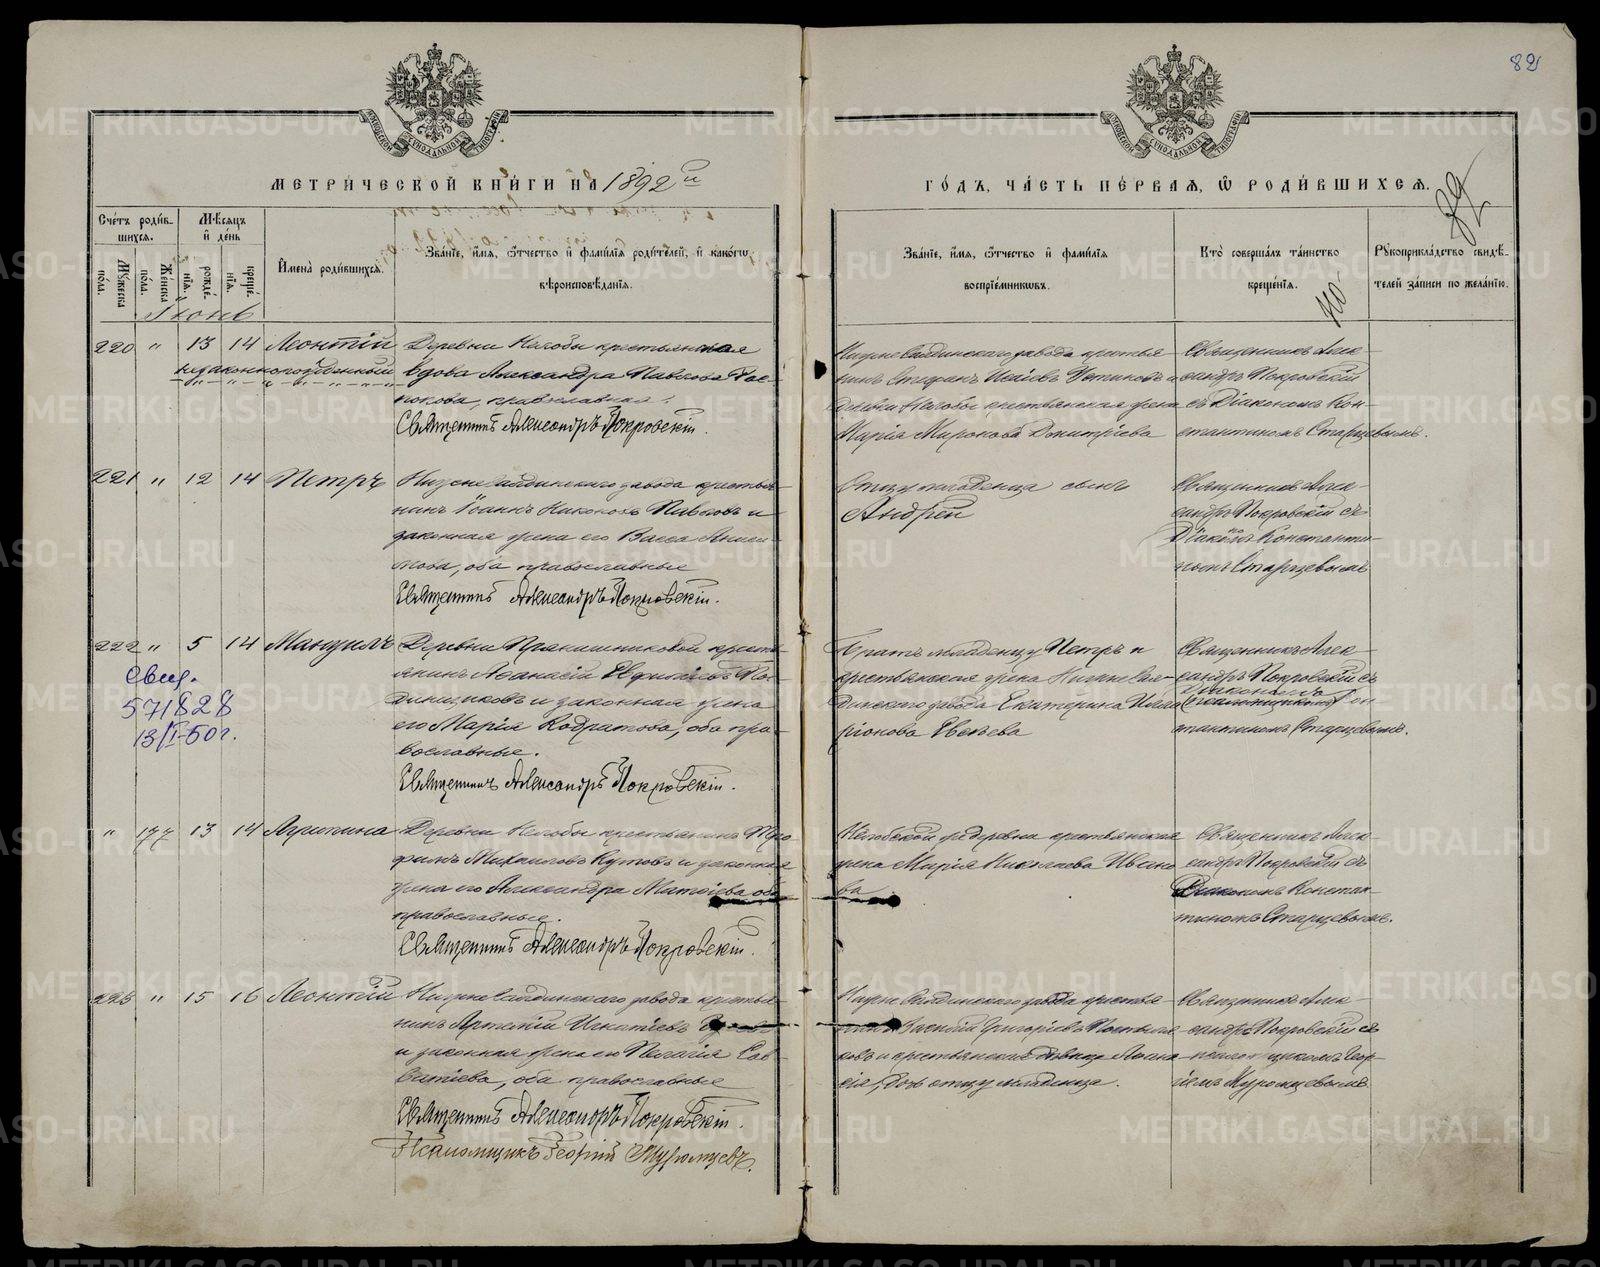 82
МЕТРИЧЕСКОЙ КНИГИ НА 1892 й
ГОДЪ, ЧАСТЬ ПЕРВАЯ, Ѡ РОДИВШИХСЯ.
82
Счетъ родив-
шихся.
Мѣсяцъ
и день
Мужеска
пола.
Женска
пола.
рожде-
нія.
креще-
нія.
Имена родившихся.
Званіе, имя, ѿчество и фамилія родителей, и какогѡ
вѣроисповѣданія.
Званіе, имя, ѿчество и фамилія
воспріемникѡвъ.
Кто совершалъ таинство
крещенія.
Рукоприкладство свидѣ-
телей записи по желанію.
Іюнь
220 " 13 14 Леонтій
незаконнорожденный
Деревни Нелобы крестьянская
вдова Александра Павлова
православная.
Священникъ Александръ Покровскій.
Нижнесалдинскаго завода кресть-
янинъ Стефанъ Исаіевъ Устиновъ и
деревни Нелобы крестьянская жена
Марія Миронова Дмитріева
Священникъ Алек-
сандръ Покровскій
съ Діакономъ Кон-
стантиномъ Старцевымъ.
221 " 12 14 Петръ
Нижнесалдинскаго завода кресть-
нинъ Іоаннъ Никоновъ Павловъ и
законная жена его Васса Аниси-
мова, оба православные
Священникъ Александръ Покровскій.
Отцу младенца сынъ
Андрей
Священникъ Алек-
сандръ Покровскій съ
Діакономъ Константи-
номъ Старцевымъ
222 " 5 14 Мануилъ
свид.
571828
13/I-50г.
Деревни Прянишниковой кресть-
янинъ Аѳанасій Евфиміевъ
и законная жена
его Марія Кодратова, оба пра-
вославные.
Священникъ Александръ Покровскій.
Братъ младенцу Петръ и
крестьянская жена Нижне Сал-
динскаго завода Екатерина Илла-
ріонова Евсѣева
Священникъ Алек-
сандръ Покровскій съ
Діакономъ Кон-
стантиномъ Старцевымъ.
" 177 13 14 Агрипина
Деревни Нелобы крестьянинъ Тро-
фимъ Михаиловъ Кутовъ и законная
жена его Александра Матѳіева оба
православные.
Священникъ Александръ Покровскій.
Нелобской деревни крестьянская
жена Марія Николаева Ивано-
ва
Священникъ Алек-
сандръ Покровскій съ
Діакономъ Констан-
тиномъ Старцевымъ.
223 " 15 16 Леонтій
Нижнесалдинскаго завода кресть-
нинъ Артемій Игнатіевъ
и законная жена его Пелагія Сав-
ватіева, оба православные
Священникъ Александръ Покровскій.
Псаломщикъ Георгій Муромцевъ.
Нижне Салдинскаго завода кресть-
янинъ Василій Григоріевъ
и крестьянская дѣвица
дочь отцу младенца.
Священникъ Алек-
сандръ Покровскій съ
псаломщикомъ Геор-
гіемъ Муромцевымъ